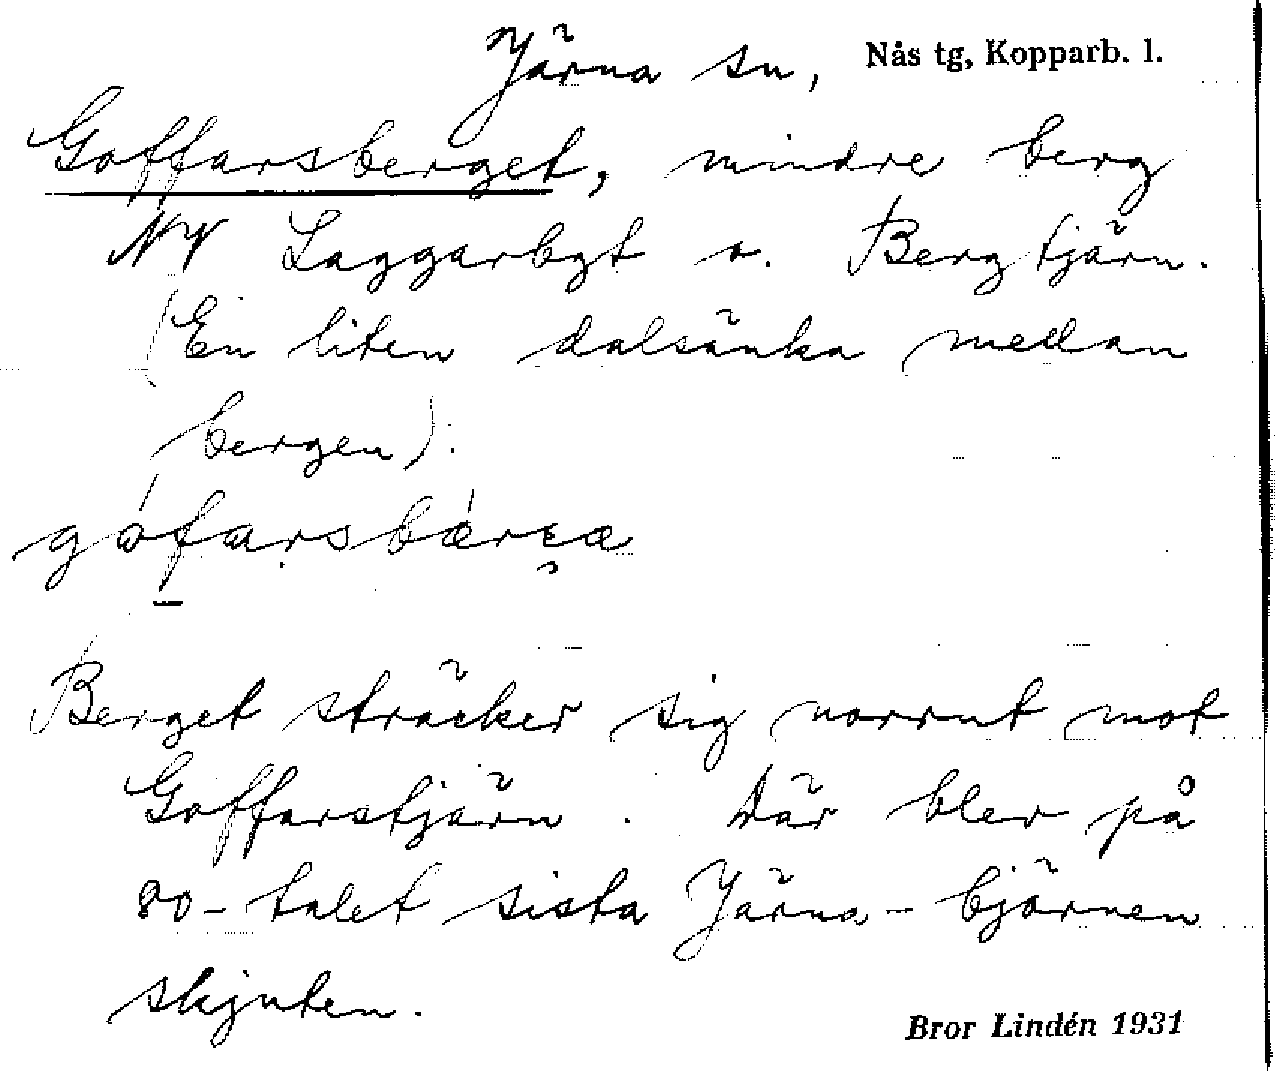 Järna sn, Nås tg, Kopparb. l.
Goffarsberget, mindre berg
NV Laggarbgt o. Bergtjärn.
(En liten dalsänka mellan
bergen).
Berget sträcker sig norrut mot
Goffarstjärn. Där blev på
80-talet sista Järna-björnen
skjuten.
Bror Lindén 1931